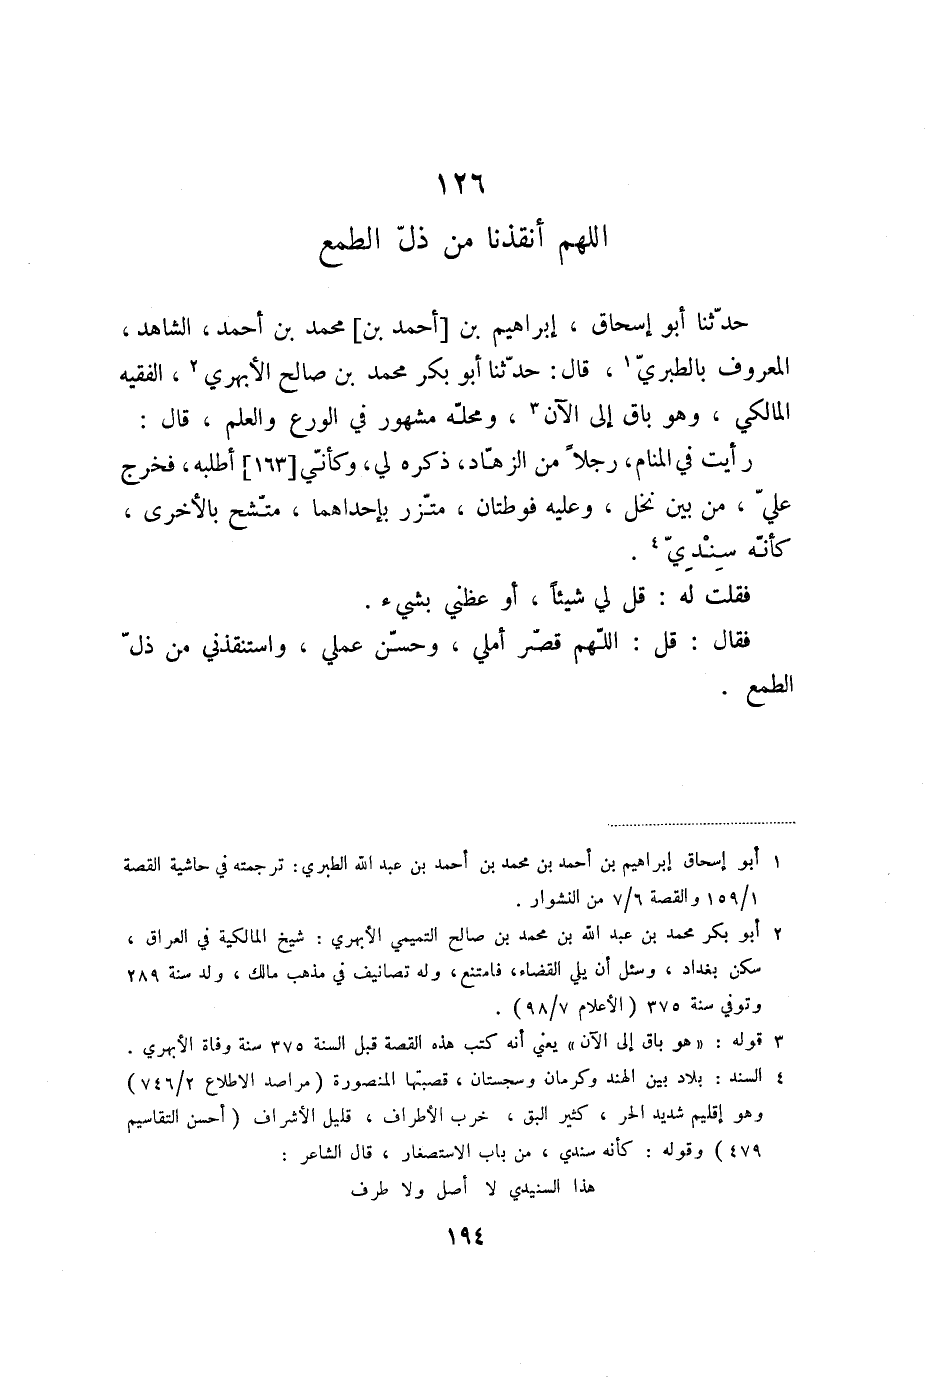 ١٢٦
اللهم أنقذنا من ذلّ الطمع
حدّثنا أبو إسحاق ، إبراهيم بن [أحمد بن] محمد بن أحمد ، الشاهد ،
المعروف بالطبريّ١ ، قال : حدّثنا أبو بكر محمد بن صالح الأبهري٢ ، الفقيه
المالكي ، وهو باق إلى الآن٣ ، ومحلّه مشهور في الورع والعلم ، قال :
رأيت في المنام، رجلاً من الزهّاد، ذكره لي، وكأنّي [١٦٣] أطلبه، فخرج
عليّ ، من بين نخل ، وعليه فوطتان ، متّزر بإحداهما ، متّشح بالأخرى ،
كأنّه سِنْدِيّ٤ .
فقلت له : قل لي شيئاً ، أو عظني بشيء .
فقال : قل : اللّهم قصّر أملي ، وحسّن عملي ، واستنقذني من ذلّ
الطمع .
١ أبو إسحاق إبراهيم بن أحمد بن محمد بن أحمد بن عبد الله الطبري : ترجمته في حاشية القصة
١٥٩/١ والقصة ٧/٦ من النشوار .
٢ أبو بكر محمد بن عبد الله بن محمد بن صالح التميمي الأبهري : شيخ المالكية في العراق ،
سكن بغداد ، وسئل أن يلي القضاء، فامتنع، وله تصانيف في مذهب مالك ، ولد سنة ٢٨٩
وتوفي سنة ٣٧٥ (الأعلام ٩٨/٧) .
٣ قوله : «هو باق إلى الآن» يعني أنه كتب هذه القصة قبل السنة ٣٧٥ سنة وفاة الأبهري .
٤ السند : بلاد بين الهند وكرمان وسجستان ، قصبتها المنصورة (مراصد الاطلاع ٧٤٦/٢)
وهو إقليم شديد الحر ، كثير البق ، خرب الأطراف ، قليل الأشراف (أحسن التقاسيم
٤٧٩) وقوله : كأنه سندي ، من باب الاستصغار ، قال الشاعر :
هذا السنيدي لا أصل ولا طرف
١٩٤